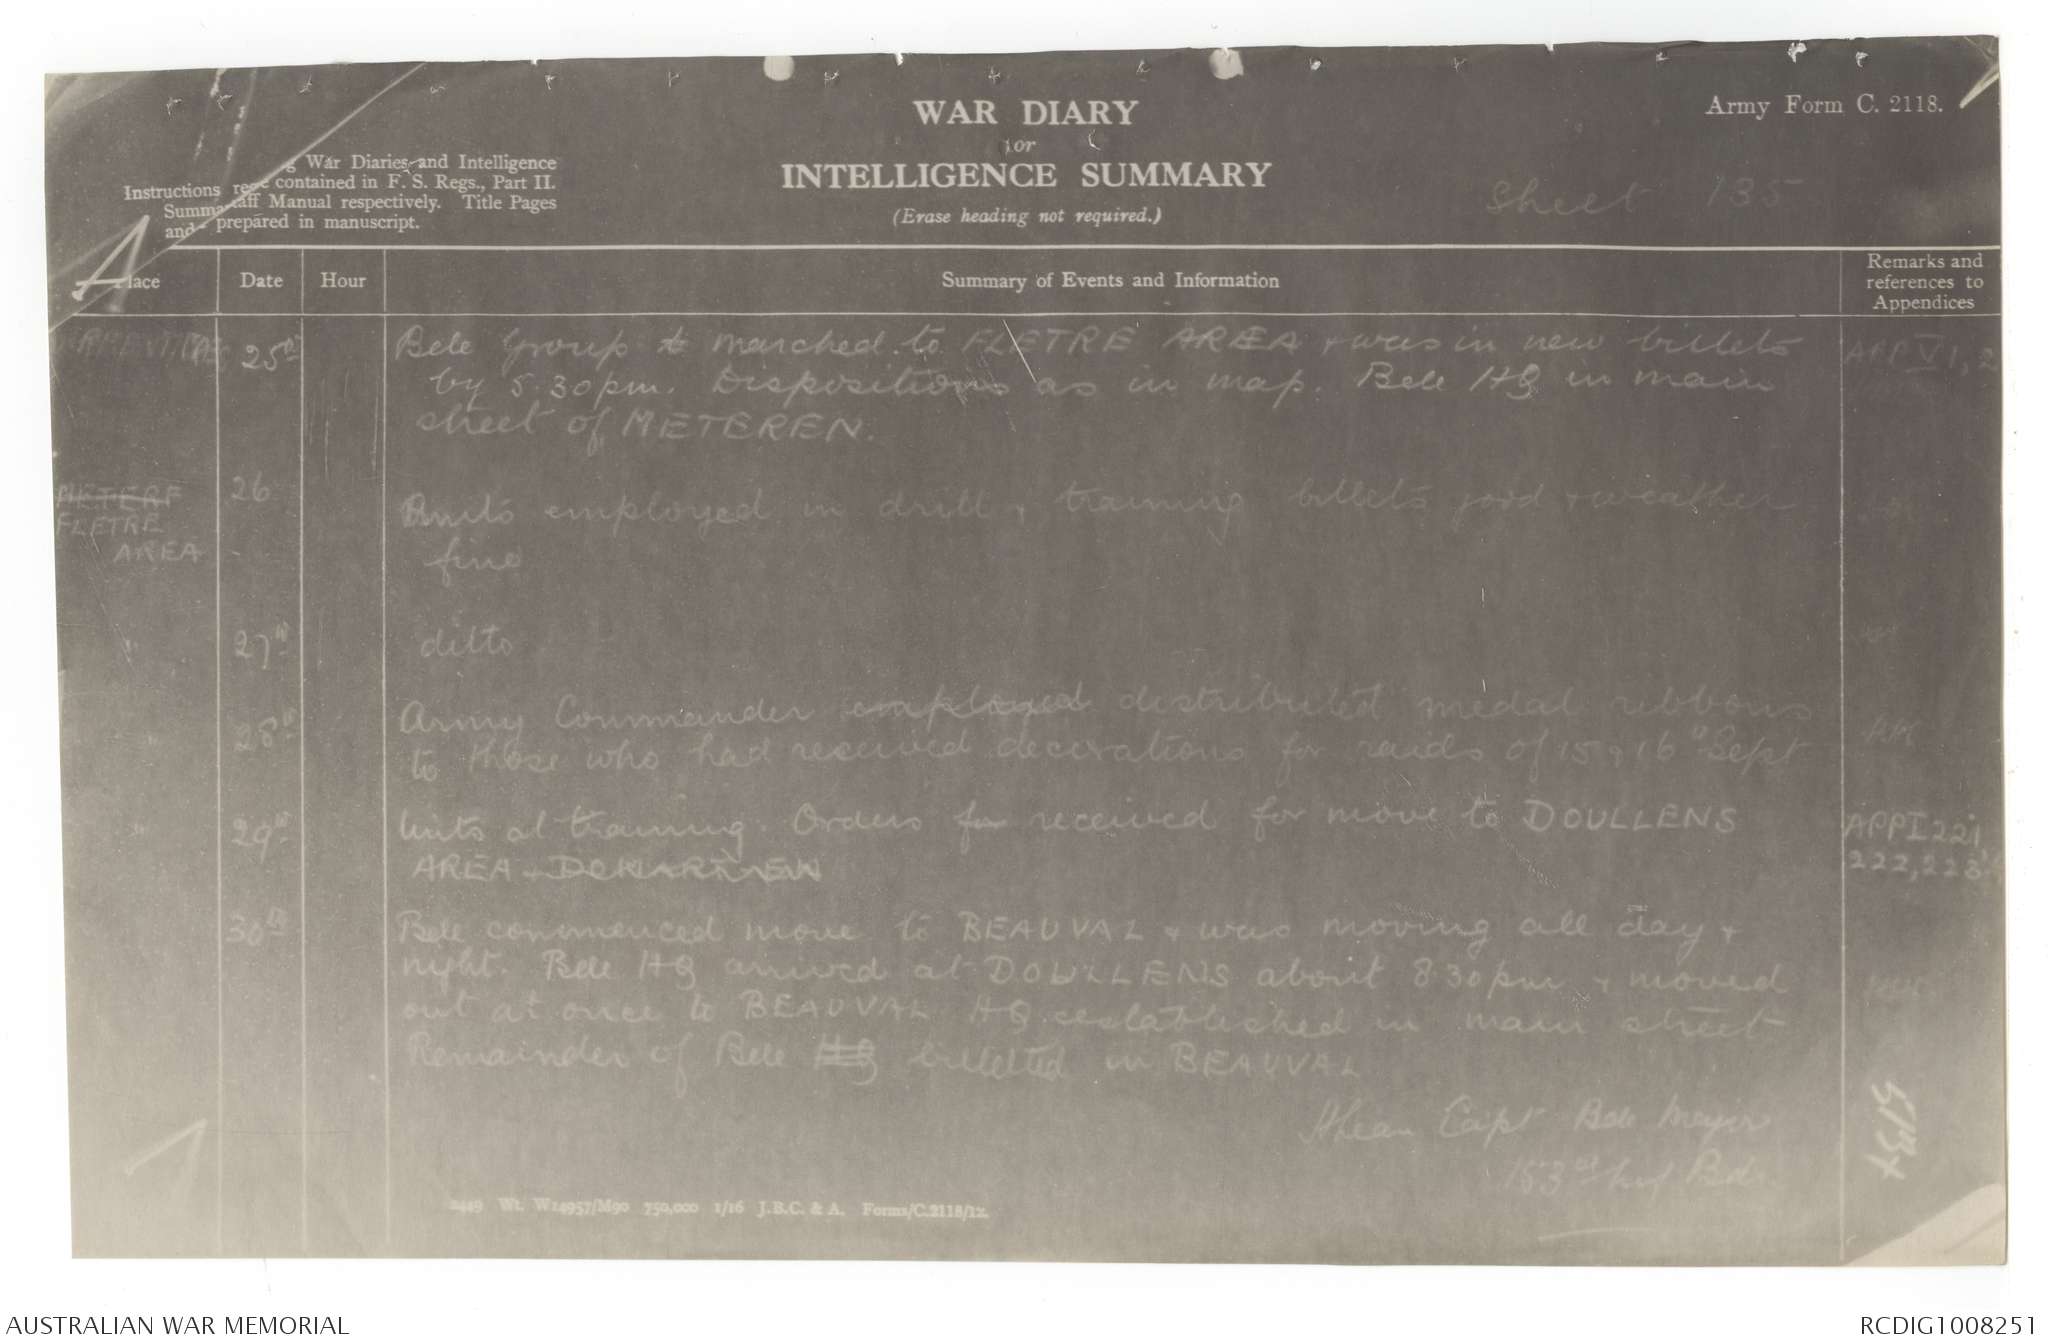 WAR DIARY
or
INTELLIGENCE SUMMARY
(Erase heading not required.)
Army Form C. 2118.
Sheet 135
g War Diaries and Intelligence
Instructions rege contained in F. S. Regs., Part II.
Summa taff Manual respectively. Title Pages
and prepared in manuscript.
lace
Date
Hour
Summary of Events and Information
Remarks and
references to
Appendices
25th
Bde Group to marched to FLETRE AREA + was in new billets
by 5.30pm. Dispositions as in map. Bde HQ in main
street of METEREN.
APP V 1, 2
METERE
FLETRE
AREA
26
Units employed in drill + training billets good + weather
fine
"
27th
ditto
28th
Army Commander employed distributed medal ribbons
to those who had received decorations for raids of 15 + 16th Sept
29th
Units at training. Orders for received for move to DOULLENS
AREA
APP I 221
222, 223
30th
Bde commenced move to BEAUVAL + was moving all day +
night. Bde HQ arrived at DOULLENS about 8.30pm + moved
out at once to BEAUVAL HQ established in main street
Remainder of Bde HQ billetted in BEAUVAL
Capt Bde Major
Inf Bde.
2449 Wt. W14957/M90 750,000 1/16 J.B.C. & A. Forms/C.2118/12.
AUSTRALIAN WAR MEMORIAL
RCDIG1008251